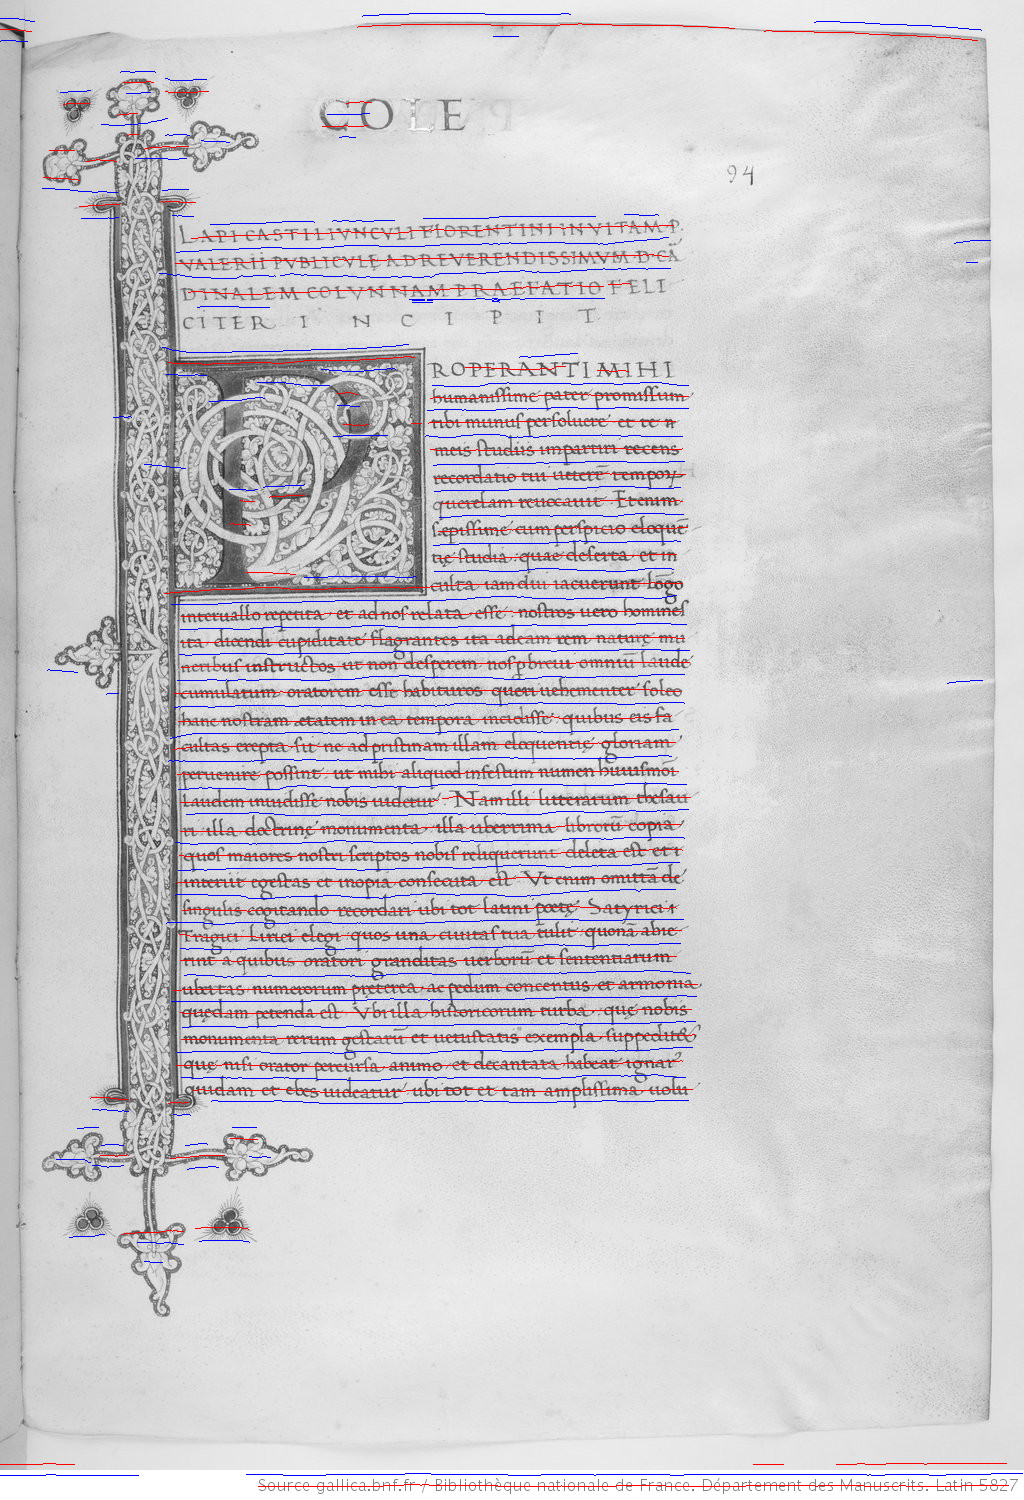 COLE
94
LAPI CASTILIVNCVLI FIORENTINI IN VITAM P.
VALERII PVBLICVLĘ AD REVERENDISSIMVM D. CĀ
DINALEM COLVNNAM PRAEFATIO FELI
CITER INCIPIT
PROPERANTI MIHI
humanissime pater promissum
tibi munus persoluere et te n
meis studiis impartiri recens
recordatio tui
querelam reuocauit Etenim
sępissime cum perspicio eloquē
tię studia quae deserta et in
culta iam diu iacuerunt longo
interuallo repetita et ad nos relata esse nostros uero homines
ita dicendi cupiditate flagrantes ita ad eam rem naturę mu
neribus instructos ut non desperem nos breui omniū laude
cumulatum oratorem esse habituros queri uehementer soleo
hanc nostram ętatem in ea tempora incidisse quibus eis fa
cultas erepta sit ne ad pristinam illam eloquentię gloriam
peruenire possint ut mihi aliquod infestum numen huiusmōi
laudem inuidisse nobis uidetur Nam illi litterarum thesau
ri illa doctrinę monumenta illa uberrima librorū copia
quos maiores nostri scriptos nobis reliquerunt deleta est et i
interiit egestas et inopia consecuta est Vt enim omittā de
singulis cogitando recordari ubi tot latini poetę Satyrici
Tragici Lirici elegi quos una ciuitas tua tulit quonā abie
rint a quibus oratori granditas uerborū et sententiarum
ubertas numerorum pręterea ac pedum concentus et armonia
quędam petenda est Vbi illa historicorum turba quę nobis
monumenta rerum gestarū et uetustatis exempla suppedit&
quę nisi orator percursa animo et decantata habeat ignar
quidam et ebes uideatur ubi tot et tam amplissima uolu
Source gallica.bnf.fr / Bibliothèque nationale de France. Département des Manuscrits. Latin 5827